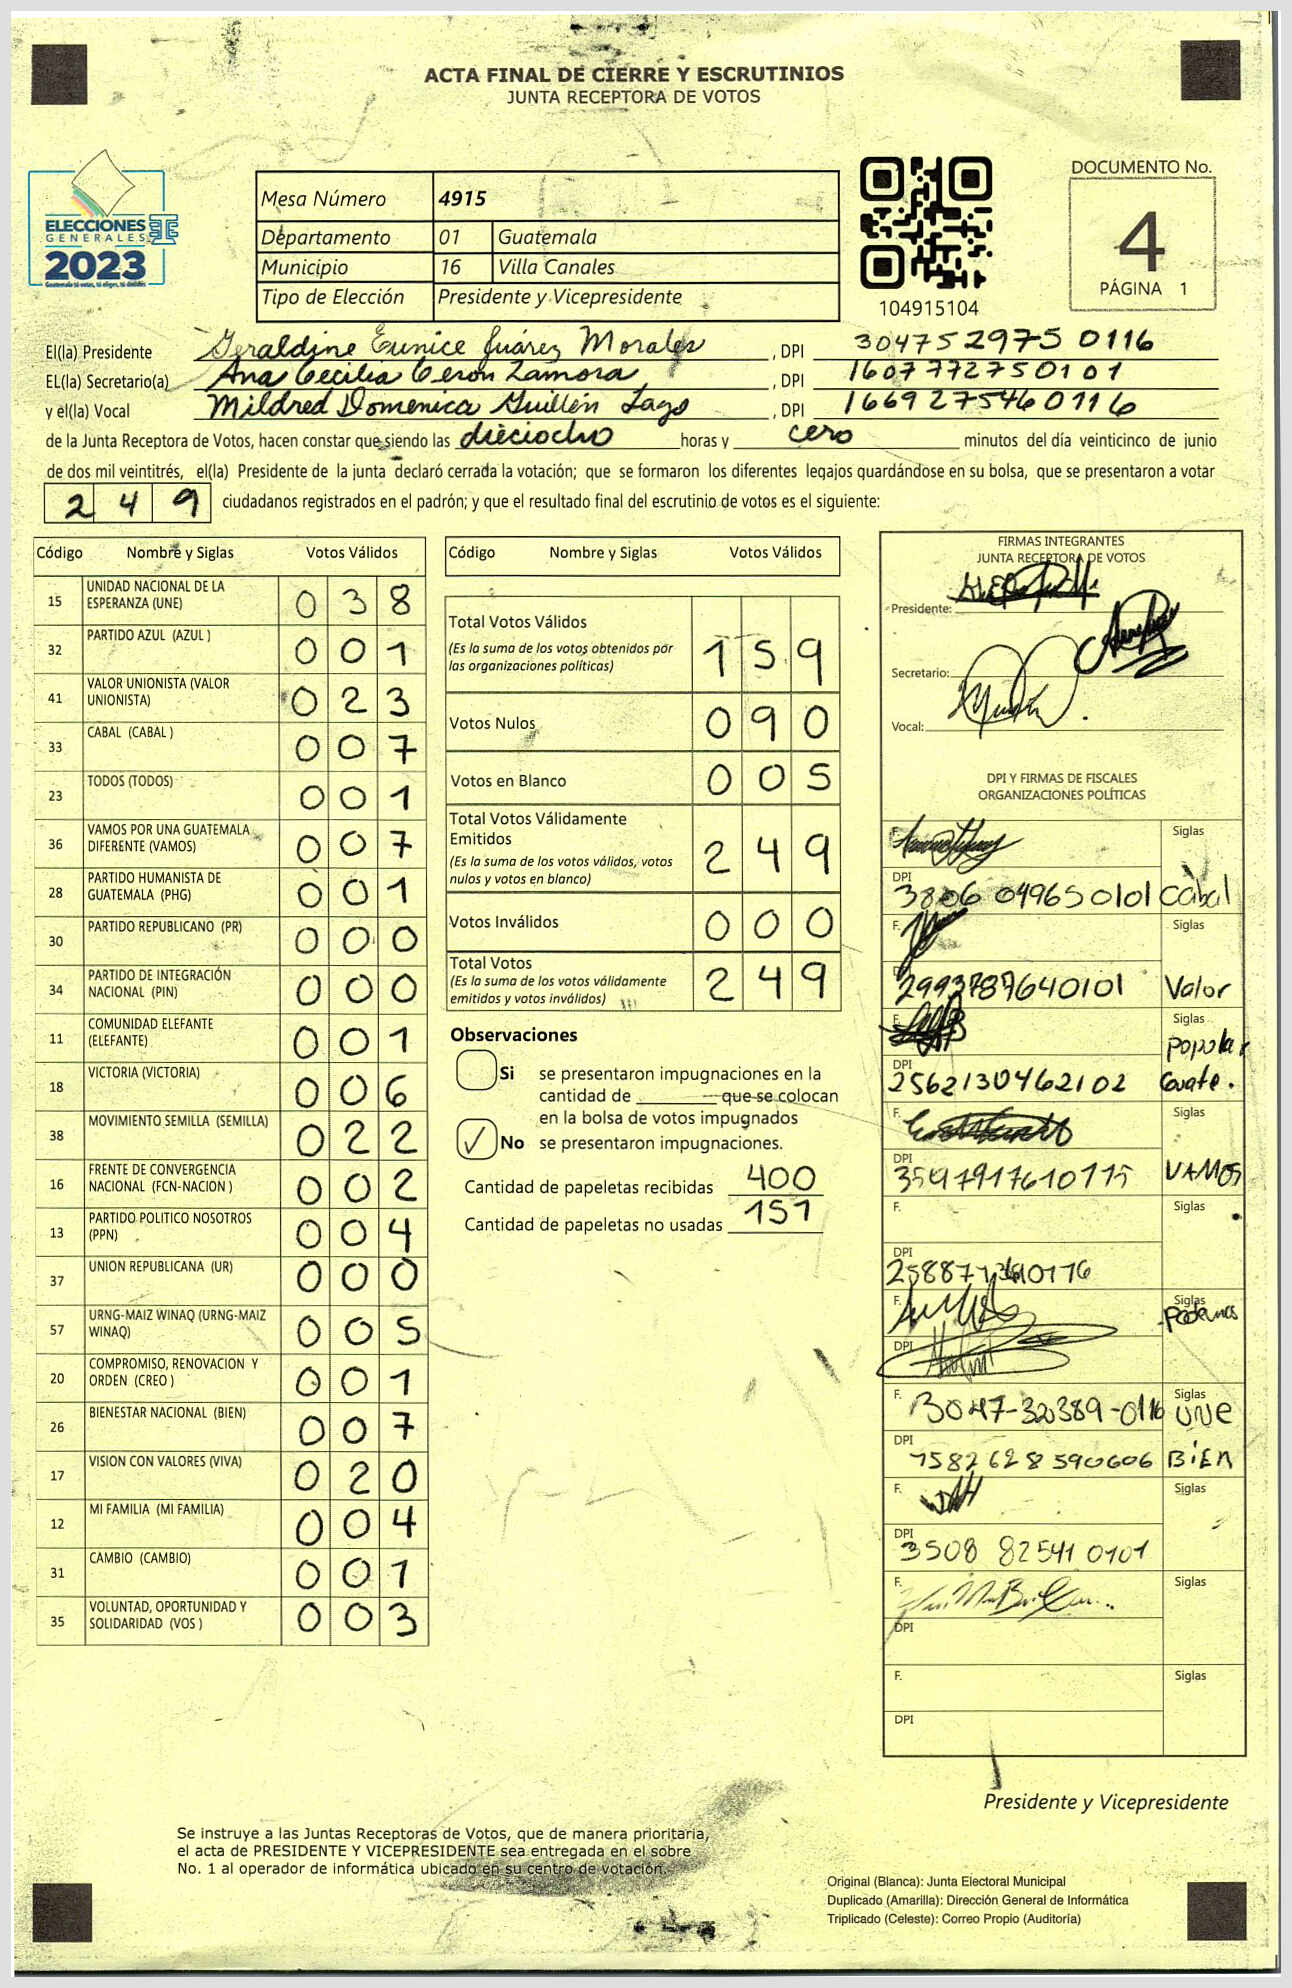 ACTA FINAL DE CIERRE Y ESCRUTINIOS
JUNTA RECEPTORA DE VOTOS
ELECCIONES
GENERALES
2023
Mesa Número 4915
Departamento 01 Guatemala
Municipio 16 Villa Canales
Tipo de Elección Presidente y Vicepresidente
104915104
DOCUMENTO No.
4
PÁGINA 1
El(la) Presidente Geraldine Eunice Juárez Morales, DPI 304752975 0116
EL(la) Secretario(a) Ana Cecilia Ceron Zamora, DPI 1607772750101
y el(la) Vocal Mildred Domenica Guillén Lago, DPI 1669275460116
de la Junta Receptora de Votos, hacen constar que siendo las dieciocho horas y cero minutos del día veinticinco de junio
de dos mil veintitrés, el(la) Presidente de la junta declaró cerrada la votación; que se formaron los diferentes legajos quardándose en su bolsa, que se presentaron a votar
2 4 9 ciudadanos registrados en el padrón; y que el resultado final del escrutinio de votos es el siguiente:
Código Nombre y Siglas Votos Válidos
15 UNIDAD NACIONAL DE LA ESPERANZA (UNE) 0 3 8
32 PARTIDO AZUL (AZUL ) 0 0 1
41 VALOR UNIONISTA (VALOR UNIONISTA) 0 2 3
33 CABAL (CABAL ) 0 0 7
23 TODOS (TODOS) 0 0 1
36 VAMOS POR UNA GUATEMALA DIFERENTE (VAMOS) 0 0 7
28 PARTIDO HUMANISTA DE GUATEMALA (PHG) 0 0 1
30 PARTIDO REPUBLICANO (PR) 0 0 0
34 PARTIDO DE INTEGRACIÓN NACIONAL (PIN) 0 0 0
11 COMUNIDAD ELEFANTE (ELEFANTE) 0 0 1
18 VICTORIA (VICTORIA) 0 0 6
38 MOVIMIENTO SEMILLA (SEMILLA) 0 2 2
16 FRENTE DE CONVERGENCIA NACIONAL (FCN-NACION ) 0 0 2
13 PARTIDO POLITICO NOSOTROS (PPN) 0 0 4
37 UNION REPUBLICANA (UR) 0 0 0
57 URNG-MAIZ WINAQ (URNG-MAIZ WINAQ) 0 0 5
20 COMPROMISO, RENOVACION Y ORDEN (CREO ) 0 0 1
26 BIENESTAR NACIONAL (BIEN) 0 0 7
17 VISION CON VALORES (VIVA) 0 2 0
12 MI FAMILIA (MI FAMILIA) 0 0 4
31 CAMBIO (CAMBIO) 0 0 1
35 VOLUNTAD, OPORTUNIDAD Y SOLIDARIDAD (VOS ) 0 0 3
Código Nombre y Siglas Votos Válidos
Total Votos Válidos
(Es la suma de los votos obtenidos por
las organizaciones políticas) 1 5 9
Votos Nulos 0 9 0
Votos en Blanco 0 0 5
Total Votos Válidamente
Emitidos
(Es la suma de los votos válidos, votos
nulos y votos en blanco) 2 4 9
Votos Inválidos 0 0 0
Total Votos
(Es la suma de los votos válidamente
emitidos y votos inválidos) 2 4 9
Observaciones
Si se presentaron impugnaciones en la
cantidad de que se colocan
en la bolsa de votos impugnados
✓ No se presentaron impugnaciones.
Cantidad de papeletas recibidas 400
Cantidad de papeletas no usadas 151
FIRMAS INTEGRANTES
JUNTA RECEPTORA DE VOTOS
Presidente:
Secretario:
Vocal:
DPI Y FIRMAS DE FISCALES
ORGANIZACIONES POLÍTICAS
F. Siglas
DPI 3806 04965 0101 Cabal
F. Siglas
2993787640101 Valor
F. Siglas
popular
DPI 2562130462102 Guate.
F. Siglas
DPI 3597917610115 VAMOS
F. Siglas
DPI
F. Siglas Podemos
DPI
F. 3047-32389-0116 Siglas UNE
DPI 1582628590606 BiEN
F. Siglas
DPI 3508 82541 0101
F. Siglas
DPI
F. Siglas
DPI
Presidente y Vicepresidente
Se instruye a las Juntas Receptoras de Votos, que de manera prioritaria,
el acta de PRESIDENTE Y VICEPRESIDENTE sea entregada en el sobre
No. 1 al operador de informática ubicado en su centro de votación.
Original (Blanca): Junta Electoral Municipal
Duplicado (Amarilla): Dirección General de Informática
Triplicado (Celeste): Correo Propio (Auditoría)